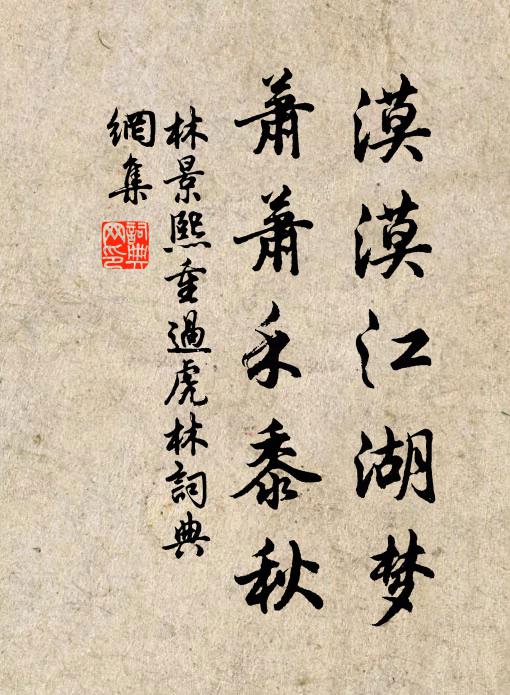 漠漠江湖梦
萧萧禾黍秋
林景熙重過虎林詞典
網集
詞典网印